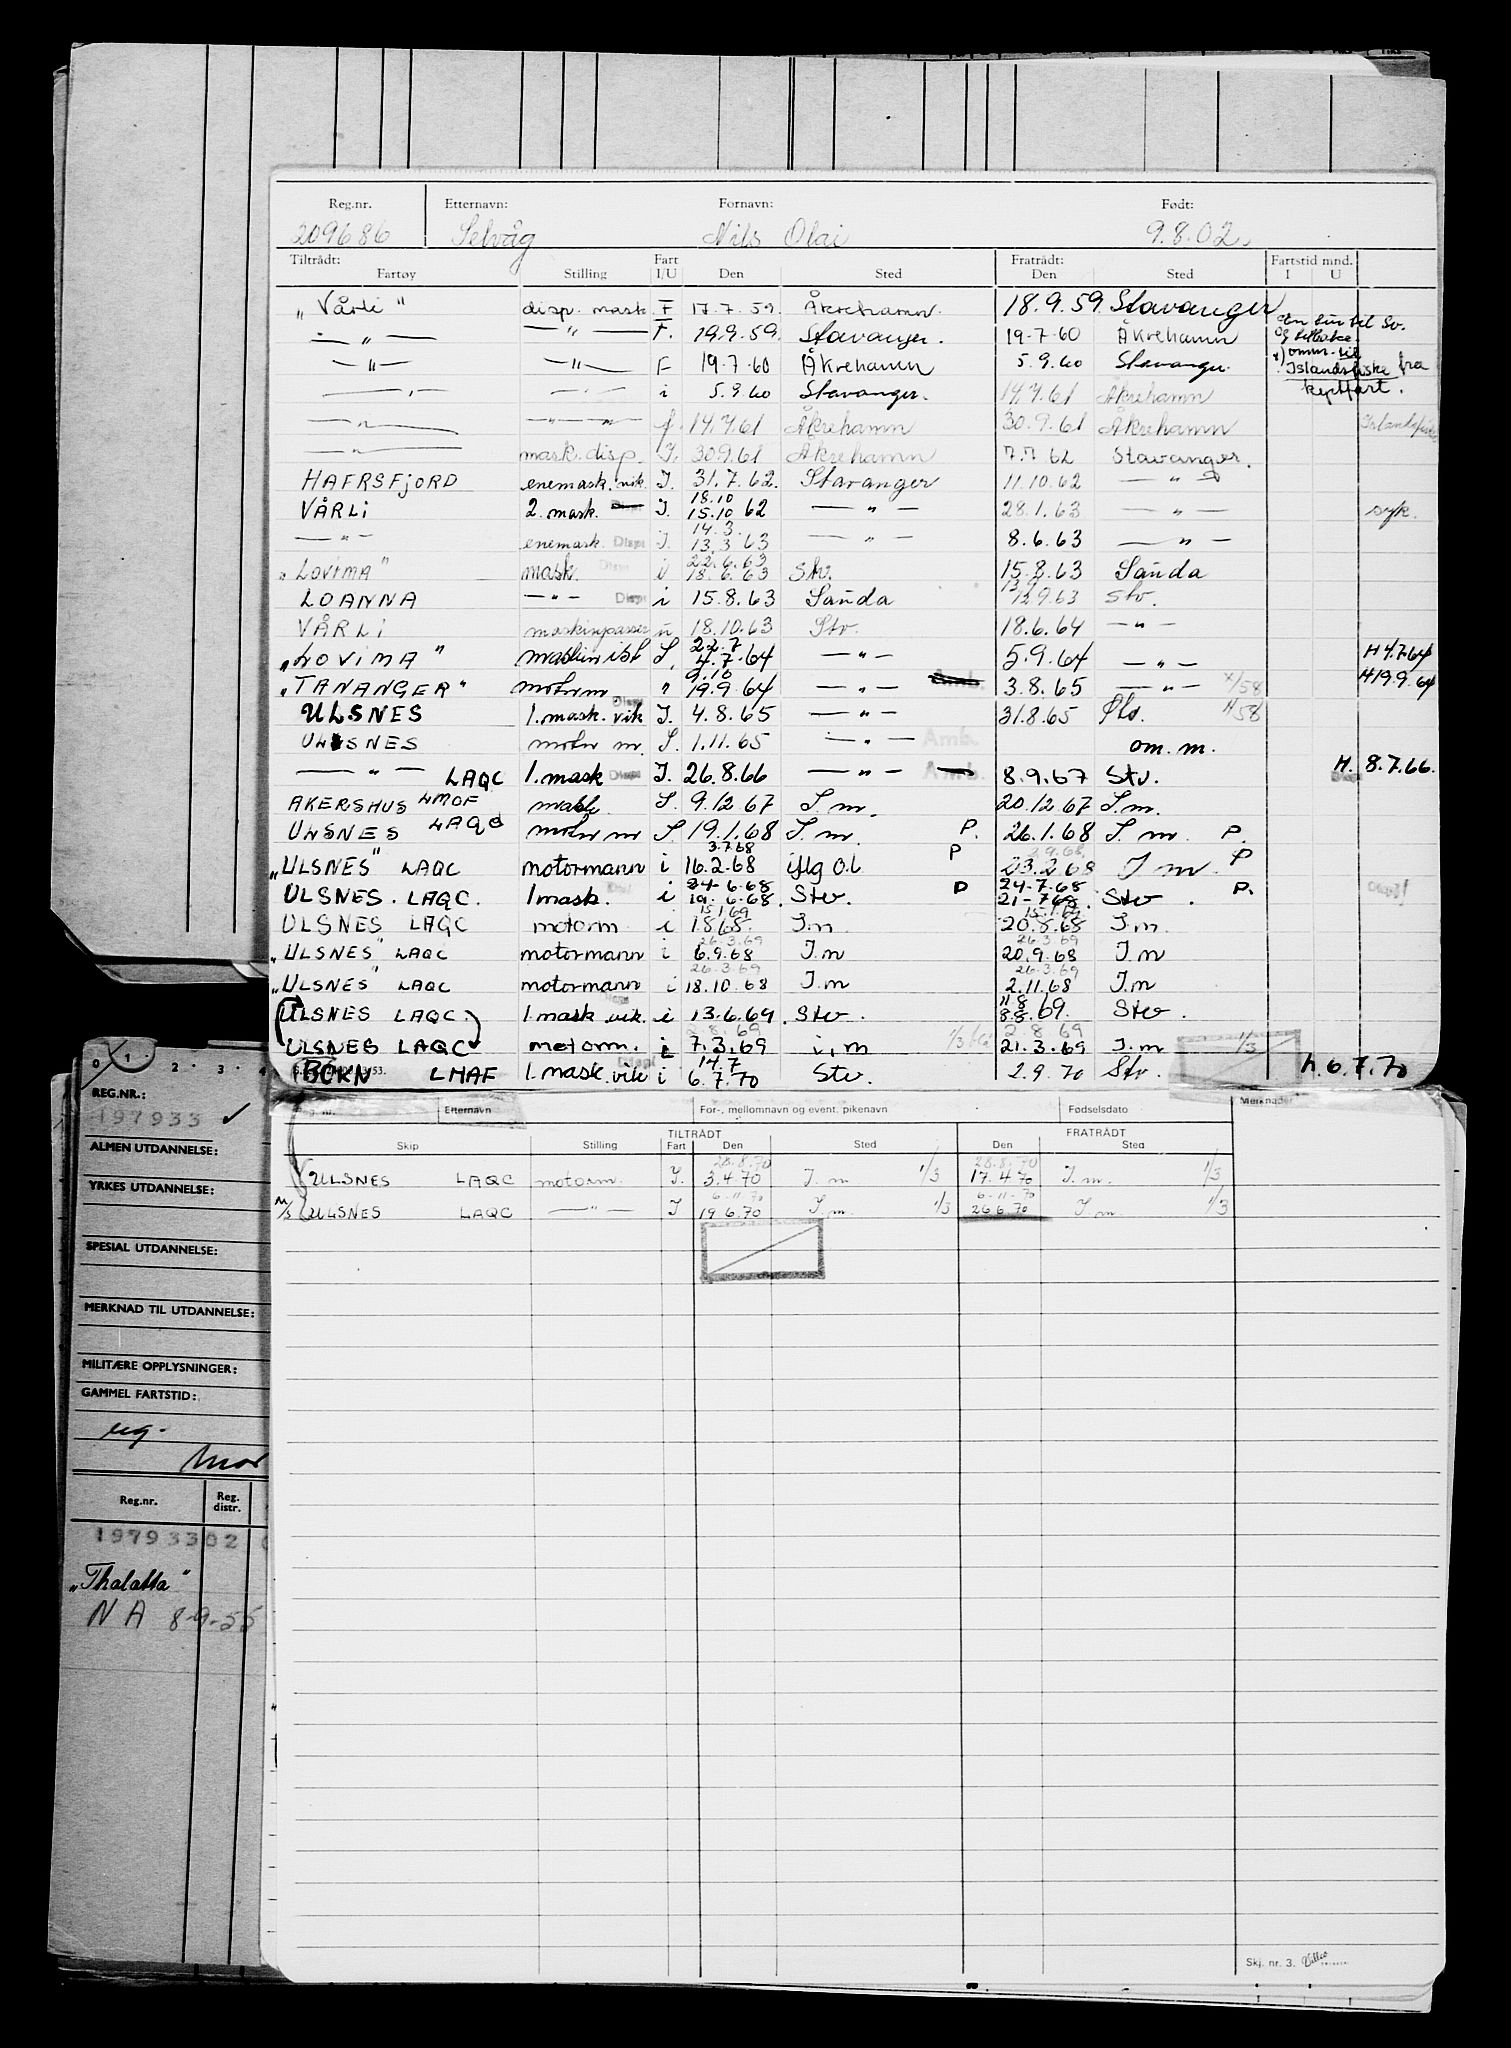 Reg.nr. Etternavn: Fornavn: Født:
209686 Selvåg Nils Olai 9.8.02.
Tiltrådt: Fart Fratrådt: Fartstid mnd.
Fartøy Stilling I/U Den Sted Den Sted I U
"Vårli" disp. mask F 17.7.59. Åkrehamn. 18.9.59. Stavanger
— " — — " — F. 19.9.59. Stavanger. 19-7-60 Åkrehamn
— " — — " — F 19.7.60 Åkrehamn 5.9.60 Stavanger. Islandsfiske fra
— " — — " — i 5.9.60 Stavanger. 14.7.61 Åkrehamn
— " — — " — f. 14.7.61 Åkrehamn 30.9.61 Åkrehamn
— " — mask. disp. I. 30.9.61 Åkrehamn 7.7.62 Stavanger.
HAFRSFJORD enemask. vik. I. 31.7.62. Stavanger 11.10.62 — " —
18.10
VÅRLI 2. mask. I. 15.10 62 — " — 28.1.63 — " — syk.
14.3.
— " — enemask. I. 13.3.63 — " — 8.6.63 — " —
22.6.63
"LOVIMA" mask. i 18.6.63 Stv. 15.8.63 Sauda
LOANNA — " — i 15.8.63 Sauda 12.9.63 Stv.
VÅRLI maskinpasser u 18.10.63 Stv. 18.6.64 — " —
22.7
"LOVIMA" maskinist I. 4.7.64 — " — 5.9.64 — " — H 4.7.64
9.10
"TANANGER" motorm " 19.9.64 — " — 3.8.65 — " — x/58 H 19.9.64
ULSNES 1. mask. vik I. 4.8.65 — " — 31.8.65 Ølo. H/58
ULSNES motor m. I. 1.11.65 — " — Amb. om. m.
— " — LAQC 1. mask I. 26.8.66 — " — 8.9.67 Stv. H. 8.7.66.
AKERSHUS LMOF mask. I. 9.12 67 I. m. 20.12.67 I. m.
ULSNES LAQC motor m I. 19.1.68 I. m. P. 26.1.68 I. m. P.
3.7.68
"ULSNES" LAQC motormann i 16.2.68 iflg o.l P 23.2.68 I m. P
24-6.68 24-7.68
ULSNES. LAQC. 1mask. i 19.6.68. Stv. P 21-768. Stv. P.
15.1.69 15.1.69
ULSNES LAQC motorm i 1.8.68. I.m 20.8.68 I.m.
26.3.69 26.3.69
"ULSNES" LAQC motormann i 6.9.68 I.m 20.9.68 I.m
26.3.69 26.3.69
"ULSNES" LAQC motormann i 18.10.68 I.m 2.11.68 I.m
11.8
ULSNES LAQC. 1. mask. vik. i 13.6.69. Stv. 8.8.69. Stv.
2.8.69 2.8 69
ULSNES LAQC motorm. i 7.3.69 i.m 21.3.69 I.m 1/3
14.7
BOKN LMAF 1. mask. vik i 6.7.70 Stv. 2.9.70 Stv. h.6.7.70
Etternavn For-, mellomnavn og event. pikenavn Fødselsdato Merknader
TILTRÅDT FRATRÅDT
Skip Stilling Fart Den Sted Den Sted
28.8.70 28.8.70
ULSNES LAQC motorm. I. 3.4.70 I. m. 1/3 17.4.70 I. m. 1/3
6-11.70 6-11-70
M/S ULSNES LAQC — " — I 19.6.70 I. m. 1/3 26.6.70 I. m. 1/3
Skj. nr. 3.
0 1 · 2 · 3 · 4
REG.NR.:
197933 ✓
ALMEN UTDANNELSE:
YRKES UTDANNELSE:
SPESIAL UTDANNELSE:
MERKNAD TIL UTDANNELSE:
MILITÆRE OPPLYSNINGER:
GAMMEL FARTSTID:
Reg.nr. Reg. distr.
19793302
"Thalatta"
NA 8-9-55